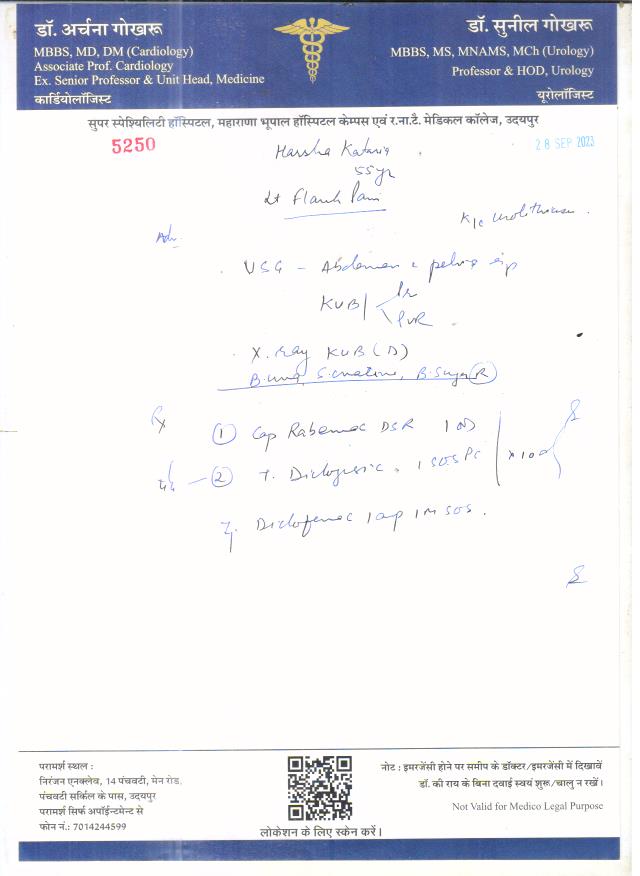 डॉ. अर्चना गोखरू
MBBS, MD, DM (Cardiology)
Associate Prof. Cardiology
Ex. Senior Professor & Unit Head, Medicine
कार्डियोलॉजिस्ट
डॉ. सुनील गोखरू
MBBS, MS, MNAMS, MCh (Urology)
Professor & HOD, Urology
यूरोलॉजिस्ट
सुपर स्पेश्यिलिटी हॉस्पिटल, महाराणा भूपाल हॉस्पिटल केम्पस एवं र.ना.टै. मेडिकल कॉलेज, उदयपुर
5250
28 SEP 2023
Harsha Kataria
55yr
Lt Flank Pain
K/c urolithiasis
Adv.
USG - Abdomen c pelvis
KUB
PVR
X. Ray KUB (D)
B.urea, S.creatinine, B.Sugar (R)
Rx
1 Cap Rabemac DSR 1 OD
2 T. 1 SOS PC
x 10d
Diclofenac 1 amp IM SOS.
परामर्श स्थल :
निरंजन एनक्लेव, 14 पंचवटी, मेन रोड,
पंचवटी सर्किल के पास, उदयपुर
परामर्श सिर्फ अपॉईन्टमेन्ट से
फोन नं.: 7014244599
लोकेशन के लिए स्केन करें।
नोट : इमरजेंसी होने पर समीप के डॉक्टर/इमरजेंसी में दिखावें
डॉ. की राय के बिना दवाई स्वयं शुरू/चालु न रखें।
Not Valid for Medico Legal Purpose